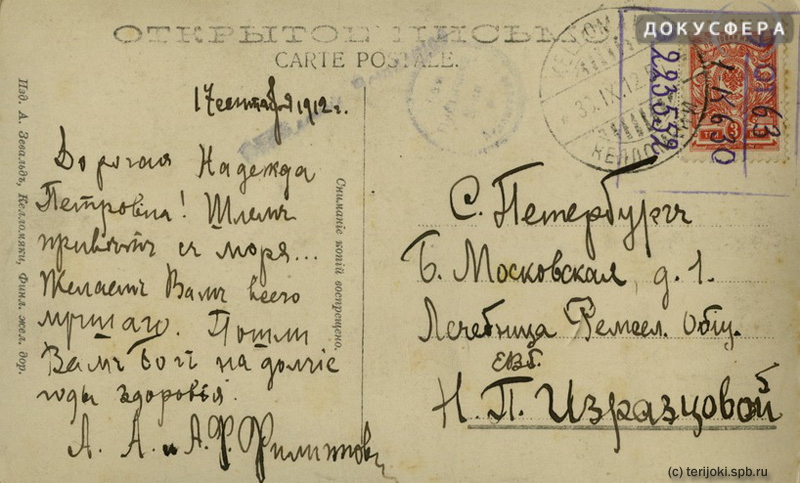 ДОКУСФЕРА
ОТКРЫТОЕ ПИСЬМО
CARTE POSTALE.
17 сентября 1912 г.
Дорогая Надежда
Петровна! Шлемъ
привѣтъ съ моря...
Желаемъ Вамъ всего
лучшаго. Пошли
Вамъ Богъ на долгіе
годы здоровья.
А. А. и А. Ф. Филипповы
С. Петербургъ
Б. Московская, д. 1.
Лечебница Ремесл. Общ.
ЕВБ.
Н. П. Изразцовой
Изд. А. Зевальдъ, Келломяки, Финл. жел. дор.
Сниманіе копій воспрещено.
63
1К630
223592
(c) terijoki.spb.ru